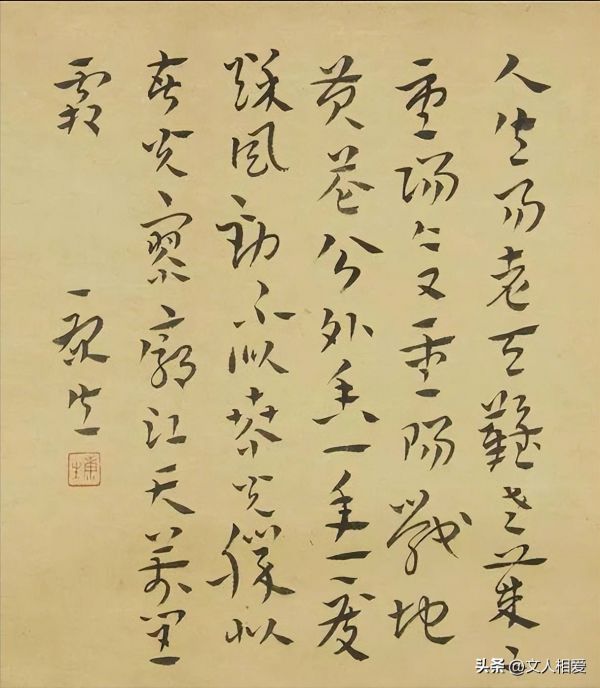 人生易老天難老歲〻
重陽今又重陽戰地
黄花分外香一年一度
秋風勁不似春光勝似
春光寥廓江天萬里
霜
康生
头条 @文人相爱